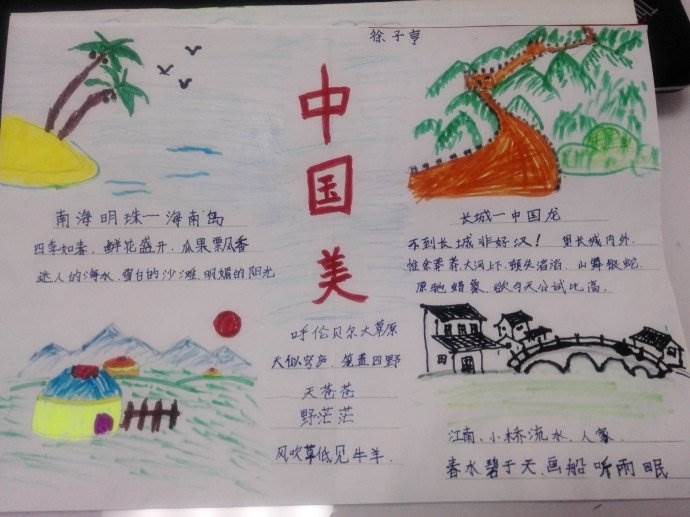 徐子亨
中国美
南海明珠一海南岛
四季如春、鲜花盛开、瓜果瓢香
迷人的海水、雪白的沙滩、明媚的阳光
长城一中国龙
不到长城非好汉！望长城内外，
惟余莽莽大河上下、顿失滔滔、山舞银蛇
原驰蜡象、欲与天公试比高。
呼伦贝尔大草原
天似穹庐、笼盖四野
天苍苍
野茫茫
风吹草低见牛羊．
江南、小桥流水、人家
春水碧于天、画船听雨眠